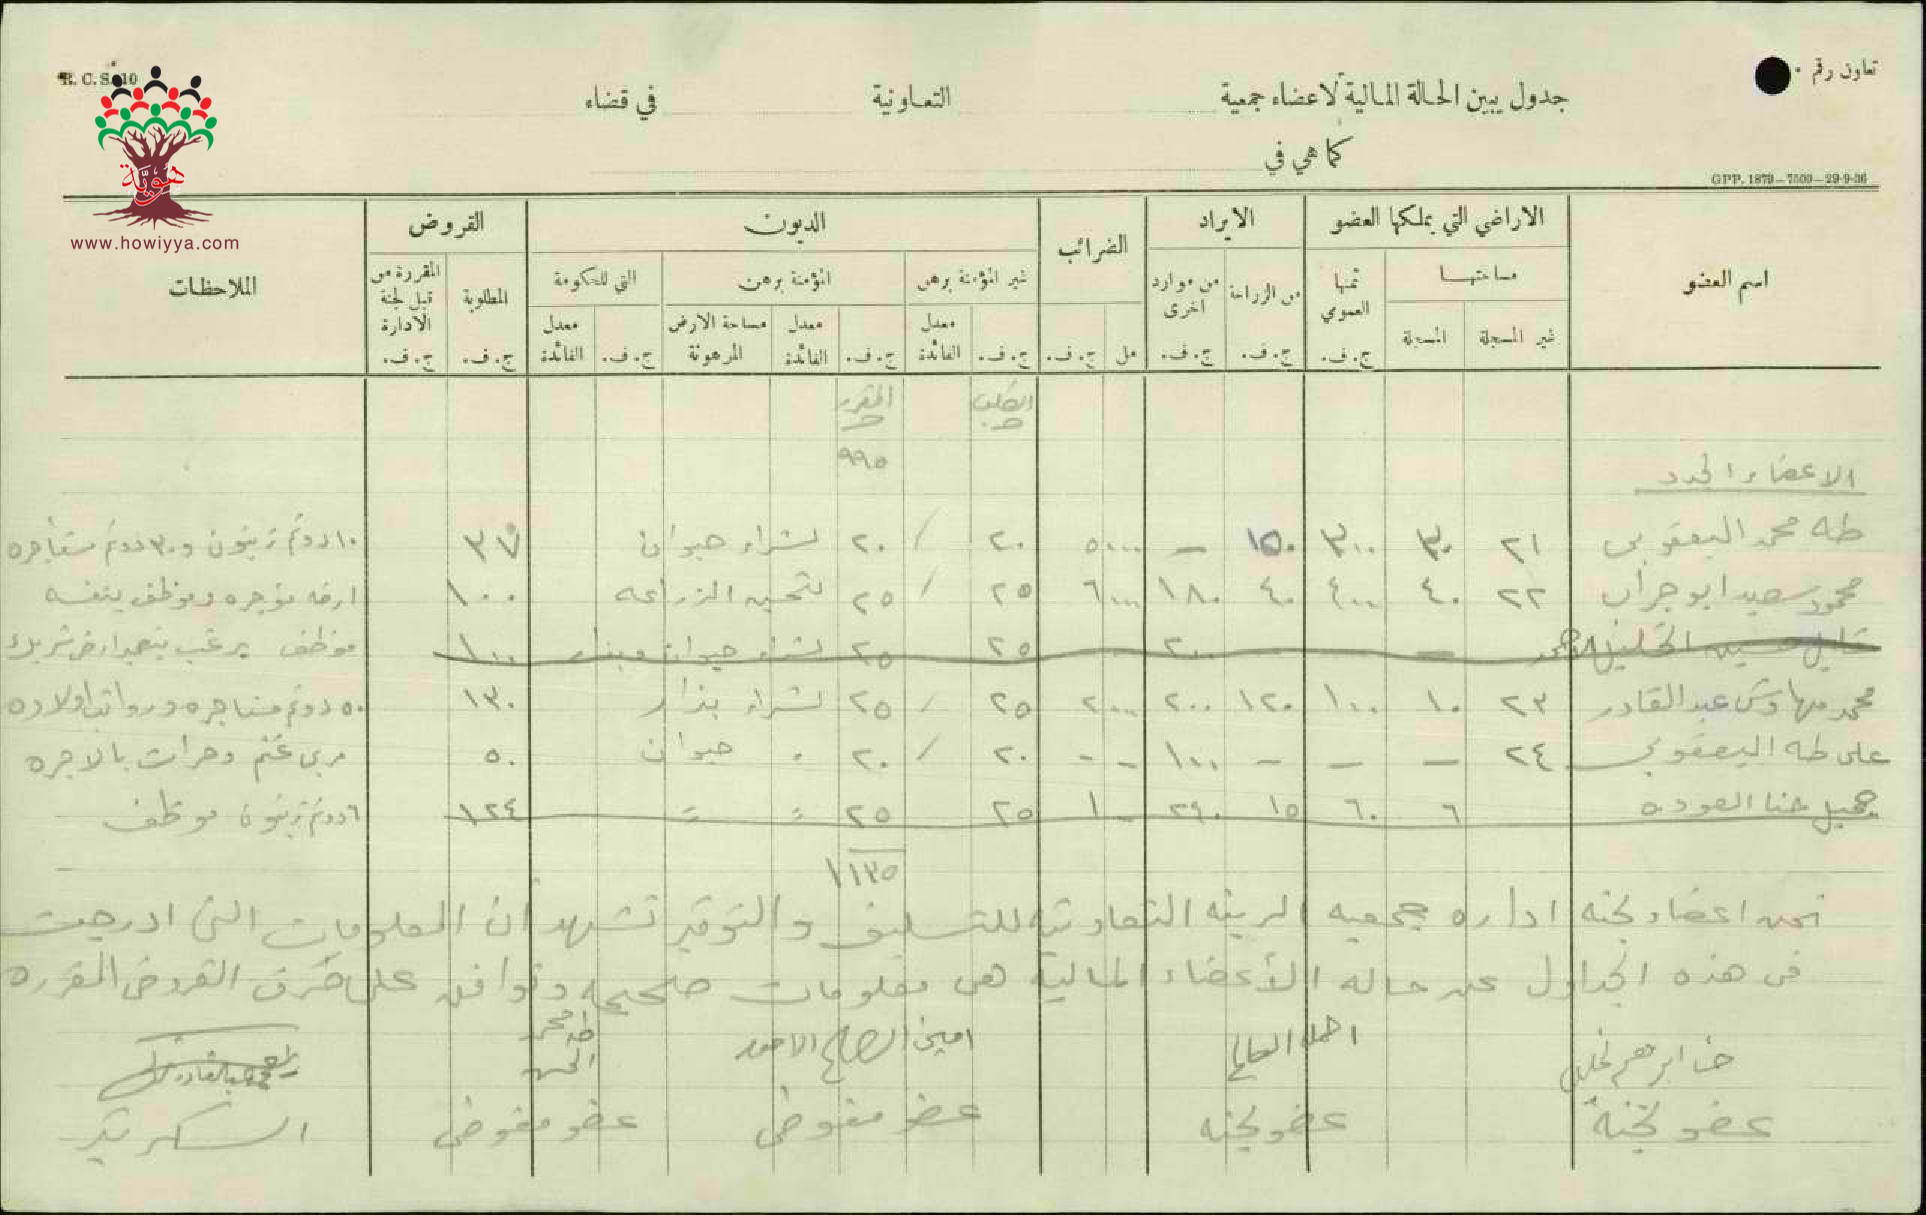 تعاون رقم ١٠
R. C. S. 10
جدول يبين الحالة المالية لاعضاء جمعية التعاونية في قضاء
كما هي في
GPP. 1879—7500—29-9-36
هويّة
www.howiyya.com
اسم العضو الاراضي التي يملكها العضو الايراد الضرائب الديون القروض الملاحظات
مساحتها ثمنها العمومي من الزراعة من موارد اخرى غير المؤمنة برهن المؤمنة برهن التي للحكومة المطلوبة المقررة من قبل لجنة الادارة
غير المسجلة المسجلة ج. ف. ج. ف. ج. ف. مل ج. ف. ج. ف. معدل الفائدة ج. ف. معدل الفائدة مساحة الارض المرهونة ج. ف. معدل الفائدة ج. ف. ج. ف.
الطلب المقرر
٩٩٥
الاعضاء الجدد
طه محمد اليعقوبي ٢١ ٣٠ ٣٠٠ ١٥٠ — ٥٠٠٠ ٢٠ / ٢٠ لشراء حيوان ٣٧ ١٠ دونم زيتون و ٣٠ دونم مستأجره
محمود سعيد ابو جراب ٢٢ ٤٠ ٤٠٠ ٤٠ ١٨٠ ٦٠٠٠ ٢٥ / ٢٥ لتحسين الزراعه ١٠٠ ارضه مؤجره وموظف بنفسه
حسين الخليل — ٢٠٠ ٢٥ ٢٥ لشراء حيوان وبذار ١٠٠ موظف يرغب
محمد مهاوش عبد القادر ٢٣ ١٠ ١٠٠ ١٢٠ ٢٠٠ ٢٠٠٠ ٢٥ / ٢٥ لشراء بذار ١٣٠ ٥٠ دونم مستاجره ورواتب اولاده
علي طه اليعقوبي ٢٤ — — — ١٠٠ - - ٢٠ / ٢٠ حيوان ٥٠ مربي غنم وحرات بالاجره
جميل حنا العوده ٦ ٦٠ ١٥ ٢٤٠ - ١ ٢٥ ٢٥ = = ١٢٤ ٦ دونم زيتون موظف
١١٣٥
نحن اعضاء لجنه اداره جمعيه الرينه التعاونيه للتسليف والتوفير نشهد ان المعلومات التي ادرجت
في هذه الجداول عن حاله الأعضاء المالية هي معلومات صحيحه ونوافق على صرف القروض المقرره
حنا ابرهيم خليل احمد العالم امين الصالح الاحمد طه محمد الحسن
عضو لجنة عضو لجنه عضو مفوض عضو مفوض السكرتير